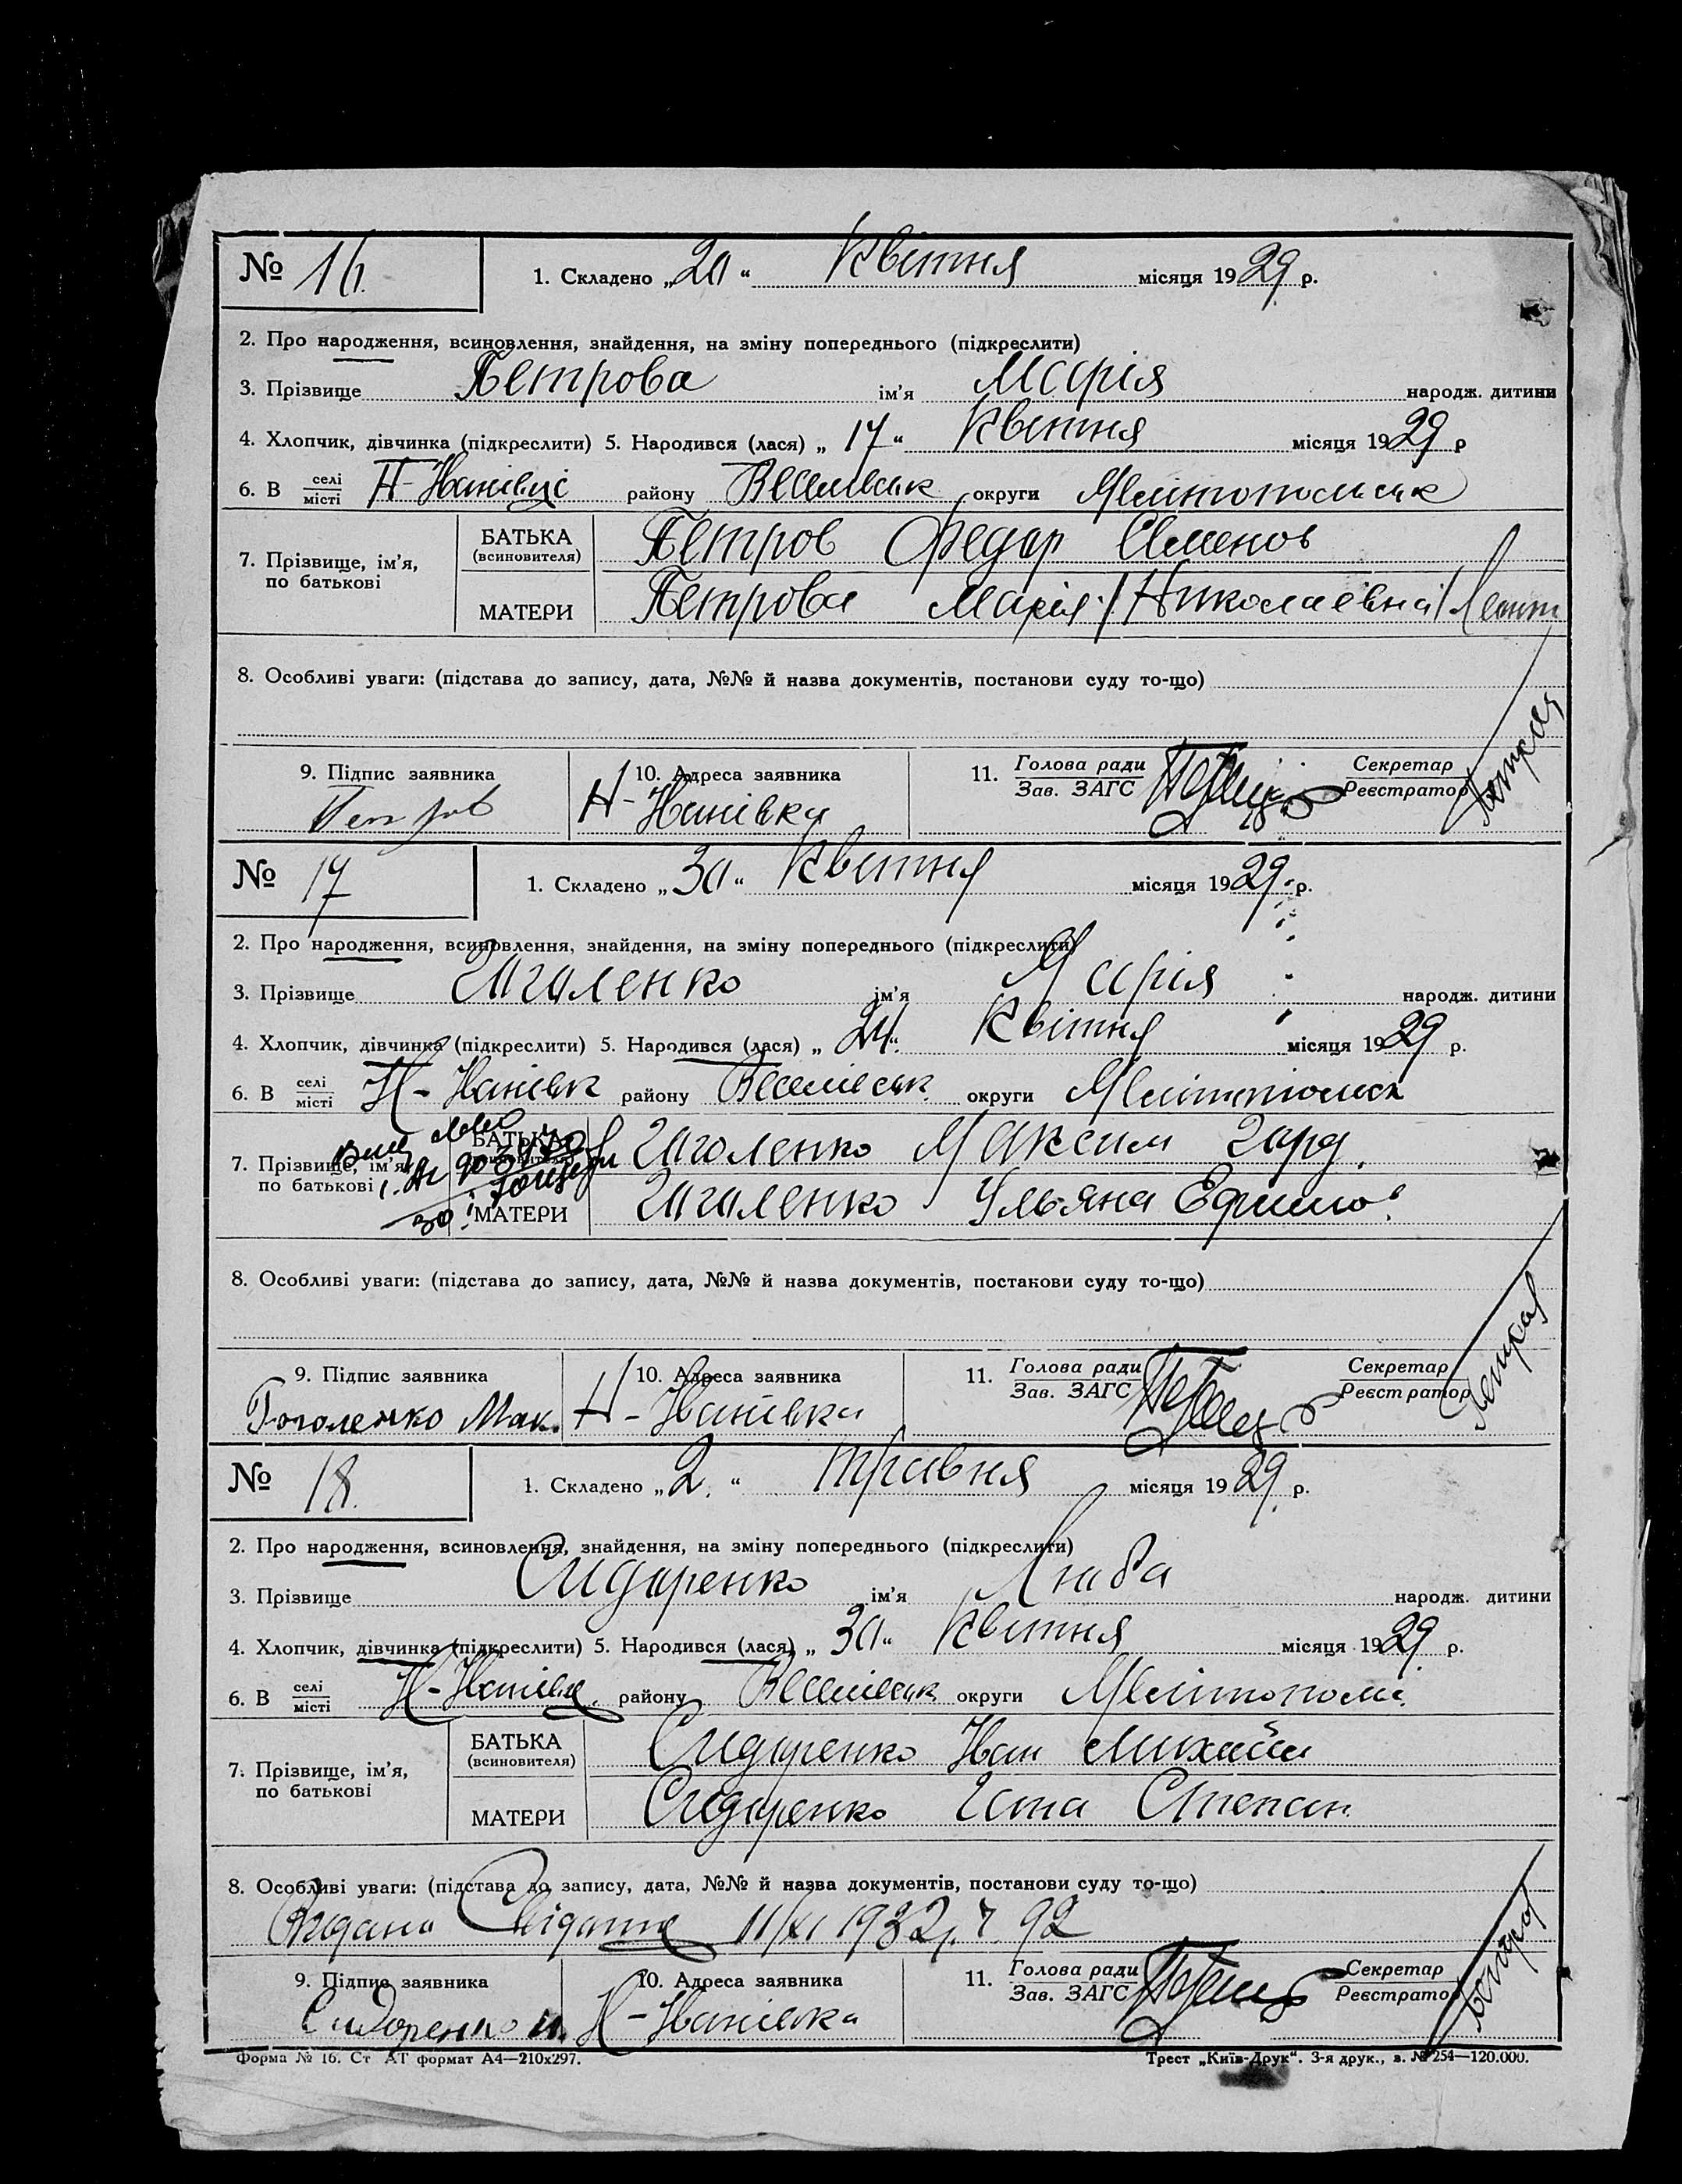 № 16. 1. Складено „20“ Квітня місяця 1929 р.
2. Про народження, всиновлення, знайдення, на зміну попереднього (підкреслити)
3. Прізвище Петрова ім'я Марія народж. дитини
4. Хлопчик, дівчинка (підкреслити) 5. Народився (лася) „17“ Квітня місяця 1929 р
6. В селі місті Н-Іванівці району Веселівськ округи Мелітопольськ
7. Прізвище, ім'я, по батькові БАТЬКА (всиновителя) Петров Федар Семенов
МАТЕРИ Петрова Марія / Николаевна /
8. Особливі уваги: (підстава до запису, дата, №№ й назва документів, постанови суду то-що)
9. Підпис заявника 10. Адреса заявника 11. Голова ради Зав. ЗАГС Секретар Реєстратор
Петров Н-Іванівка
№ 17 1. Складено „30“ Квітня місяця 1929. р.
2. Про народження, всиновлення, знайдення, на зміну попереднього (підкреслити)
3. Прізвище ім'я Марія народж. дитини
4. Хлопчик, дівчинка (підкреслити) 5. Народився (лася) „24“. Квітня місяця 1929 р.
6. В селі місті Н-Іванівк району Веселівськ округи
7. Прізвище, ім'я, по батькові БАТЬКА Гоголенко Максим
МАТЕРИ Гоголенко Ульяна Ефимов
8. Особливі уваги: (підстава до запису, дата, №№ й назва документів, постанови суду то-що)
9. Підпис заявника 10. Адреса заявника 11. Голова ради Зав. ЗАГС Секретар Реєстратор
Гоголенко Мак. Н-Іванівка
№ 18. 1. Складено „2.“ травня місяця 1929. р.
2. Про народження, всиновлення, знайдення, на зміну попереднього (підкреслити)
3. Прізвище Сидоренко ім'я Люба народж. дитини
4. Хлопчик, дівчинка (підкреслити) 5. Народився (лася) „30“ Квітня місяця 1929. р.
6. В селі місті Н-Іванівці. району Веселівськ округи Мелітополь.
7. Прізвище, ім'я, по батькові БАТЬКА (всиновителя) Сидоренко Іван Михайл
МАТЕРИ Сидоренко Степан
8. Особливі уваги: (підстава до запису, дата, №№ й назва документів, постанови суду то-що)
Видано Свідоцтв 11/XI 1932р. 92
9. Підпис заявника 10. Адреса заявника 11. Голова ради Зав. ЗАГС Секретар Реєстратор
Сидоренко И. Н-Іванівка
Форма № 16. Ст АТ формат А4—210х297. Трест „Київ-Друк“. 3-я друк., з. № 254—120.000.